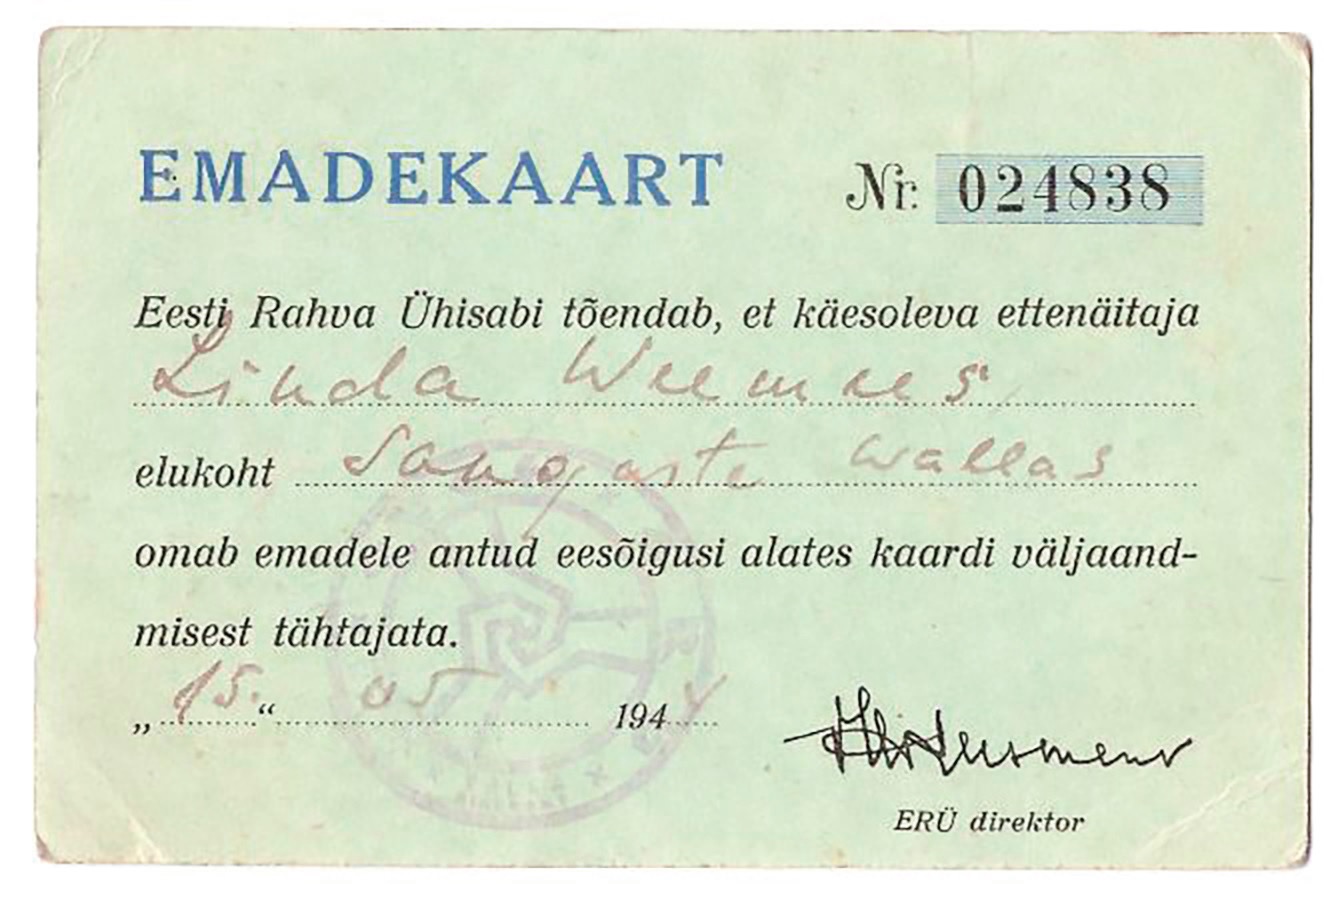 EMADEKAART Nr. 024838
Eesti Rahva Ühisabi tõendab, et käesoleva ettenäitaja
Linda Weemees
elukoht Sangaste wallas
omab emadele antud eesõigusi alates kaardi väljaand-
misest tähtajata.
„15.“ 05 1944
ERÜ direktor